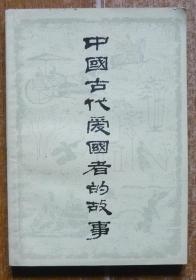 中國古代爱國者的故事